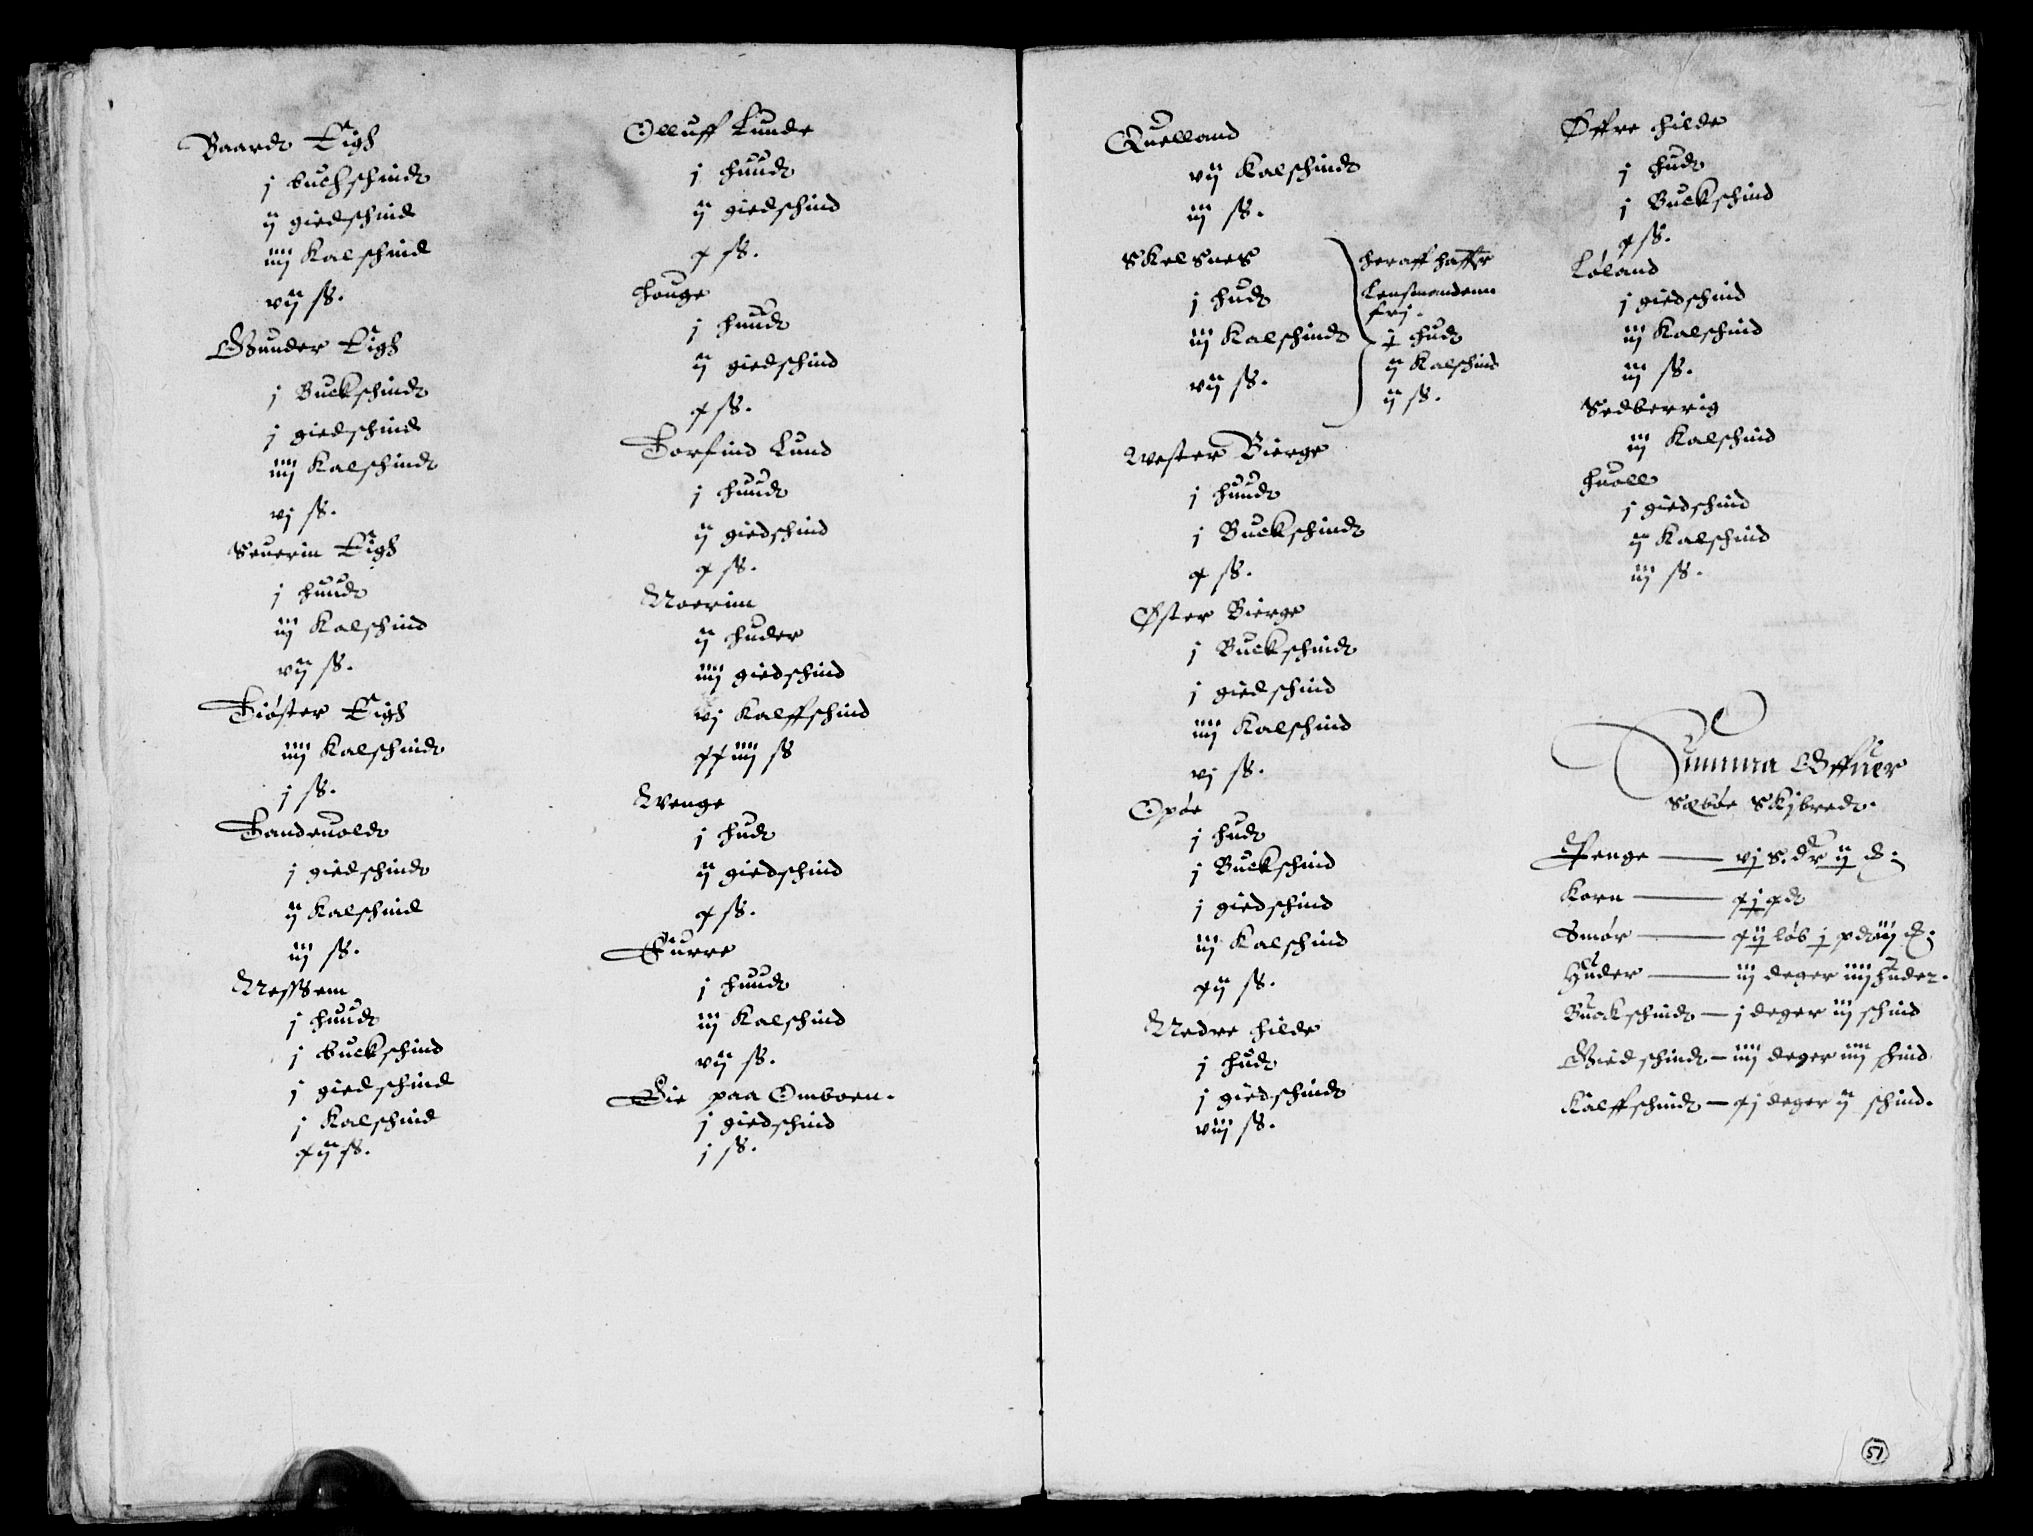 Baardt Tigh
j buchschindt
ij giedschind
iiij Kalschind
vij ß.
Gunder Tigh
j Buckschindt
j giedschind
iiij Kalschindt
vj ß.
Seuerin Tigh
j huudt
iij Kalschind
vij ß.
Tiøster Tigh
iiij Kalschindt
j ß.
Tandeuoldt
j giedschindt
ij Kalschind
iij ß.
Nessem
j huudt
j buckschind
j giedschind
j Kalschind
xij ß.
Olluff Lunde
j huudt
ij giedschind
x ß.
Houge
j huudt
ij giedschind
x ß.
Torfind Lund
j huudt
ij giedschind
x ß.
Noerim
ij huder
iiij giedschind
vj Kalffschind
xxiiij ß
Wenge
j hudt
ij giedschind
x ß.
Furre
j huudt
iij Kalschind
vij ß.
Eie paa Omboen.
j giedschind
j ß.
Quelland
vij Kalschindt
iij ß.
Skelsnes
j hudt
iij Kalschindt
vij ß.
Heraff haffr
Lensmandenn
frj.
j hudt
ij Kalschind
ij ß.
Wester Bierge
j huudt
j Buckschindt
x ß.
Øster Bierge
j Buckschindt
j giedschind
iiij Kalschind
vj ß.
Opøe
j hudt
j Buckschind
j giedschind
iij Kalschind
xij ß.
Nedre Hilde
j hudt
j giedschindt
viij ß.
Øffre Hilde
j hudt
j Buckschind
x ß.
Løland
j giedschind
iij Kalschind
iij ß.
Sedberrig
iij Kalschind
Huoll
j giedschind
ij Kalschind
iij ß.
Summa Offuer
Sæbøe Skibredt.
Penge — vj S. dr ij
Korn — xj
Smør — xij løb j
Huder — iij deger iiij huder.
Buckschindt — j deger iij schind
Giedschindt — iiij deger iiij schind
Kalffschindt — xj deger ij schind.
57